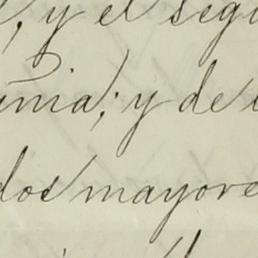 , y el segu
inia; y de l
dos mayore